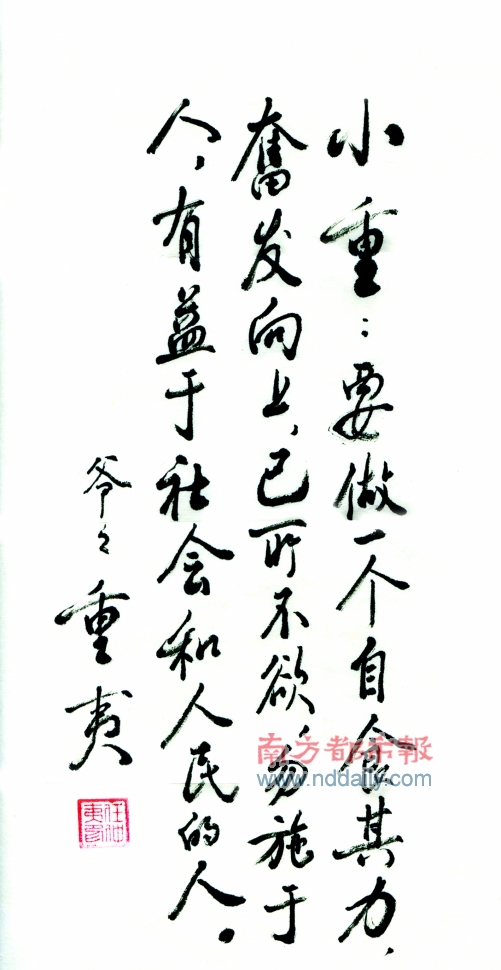 小重：要做一个自食其力，
奮发向上，己所不欲，勿施于
人，有益于社会和人民的人。
爷々重夷
任仲夷印
南方都市報
www.nddaily.com